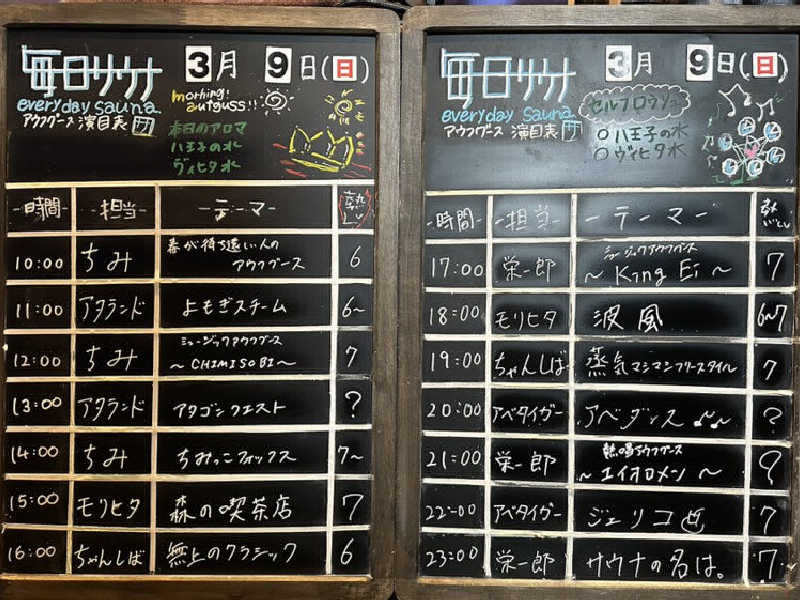 毎日サウナ
3月 9日(日)
everyday sauna
アウフグース 演目表
morning!
aufguss!!
本日のアロマ
八王子の水
ヴィヒタ水
時間 担当 テーマ
10:00 ちみ 春が待ち遠しい人のアウフグース 6
11:00 アタランド よもぎスチーム 6~
12:00 ちみ ミュージックアウフグース ~CHIMISOBI~ 7
13:00 アタランド アタゴンクエスト ?
14:00 ちみ ちみっこフォックス 7~
15:00 モリヒタ 森の喫茶店 7
16:00 ちゃんしば 無上のクラシック 6
毎日サウナ
3月 9日(日)
everyday sauna
アウフグース 演目表
セルフロウリュ
○八王子の水
○ヴィヒタ水
時間 担当 テーマ
17:00 栄一郎 ミュージックアウフグース ~King Ei~ 7
18:00 モリヒタ 波風 6~7
19:00 ちゃんしば 蒸気マシマシフリースタイル 7
20:00 アベタイガー アベダンス ?
21:00 栄一郎 アウフグース ~エイオロメン~ 9
22:00 アベタイガー ジェリコ 7
23:00 栄一郎 サウナの名は。 7